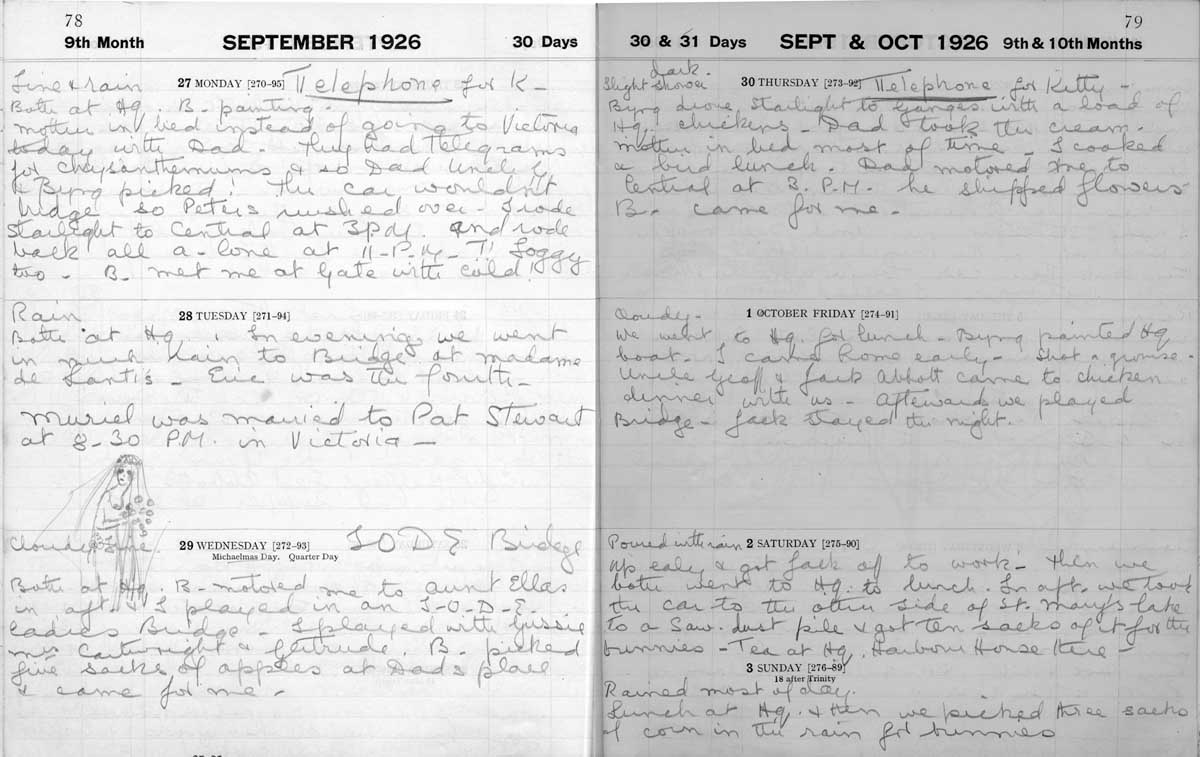 78
9th Month SEPTEMBER 1926 30 Days
Fine & rain 27 MONDAY [270-95] Telephone for K -
Both at Hq. B- painting -
mother in bed instead of going to Victoria
today with Dad. They had Telegrams
for Chrysanthemums & so Dad Uncle G
& Byng picked! The car wouldn't
budge so Peters rushed over - I rode
Starlight to Central at 3 P.M. and rode
back all a-lone at 11-P.M- Foggy
too - B. met me at Gate with cold!
Rain 28 TUESDAY [271-94]
Both at Hq. In evening we went
in much rain to Bridge at madame
de - Eric was the fourth -
Muriel was married to Pat Stewart
at 8-30 PM. in Victoria -
Cloudy fine 29 WEDNESDAY [272-93] I O D E Bridge
Michaelmas Day. Quarter Day
Both at Hq. B- motored me to aunt Ellas
in aft & I played in an I-O-D-E.
Ladies Bridge - I played with
mrs Cartwright & Gertrude. B. picked
five sacks of apples at Dads place
& came for me -
79
30 & 31 Days SEPT & OCT 1926 9th & 10th Months
dark.
Slight shower 30 THURSDAY [273-92] Telephone for Kitty -
Byng drove Starlight to Ganges with a load of
Hq. chickens - Dad took the cream.
mother in bed most of time - I cooked
a bird lunch. Dad motored me to
Central at 3. P.M. he shipped flowers
B. came for me -
Cloudy - 1 OCTOBER FRIDAY [274-91]
We went to Hq. for lunch - Byng painted Hq
boat - I came home early - shot a grouse -
Uncle Geoff & Jack Abbott came to chicken
dinner with us - Afterwards we played
Bridge - Jack stayed the night.
Poured with rain 2 SATURDAY [275-90]
up ealy & got Jack off to work - Then we
both went to Hq. to lunch. In aft. we took
the car to the other side of St. Mary's lake
to a Saw. dust pile & got ten sacks of it for the
bunnies - Tea at Hq. Harbour House there -
3 SUNDAY [276-89]
18 after Trinity
Rained most of day.
Lunch at Hq. & then we picked three sacks
of corn in the rain for bunnies